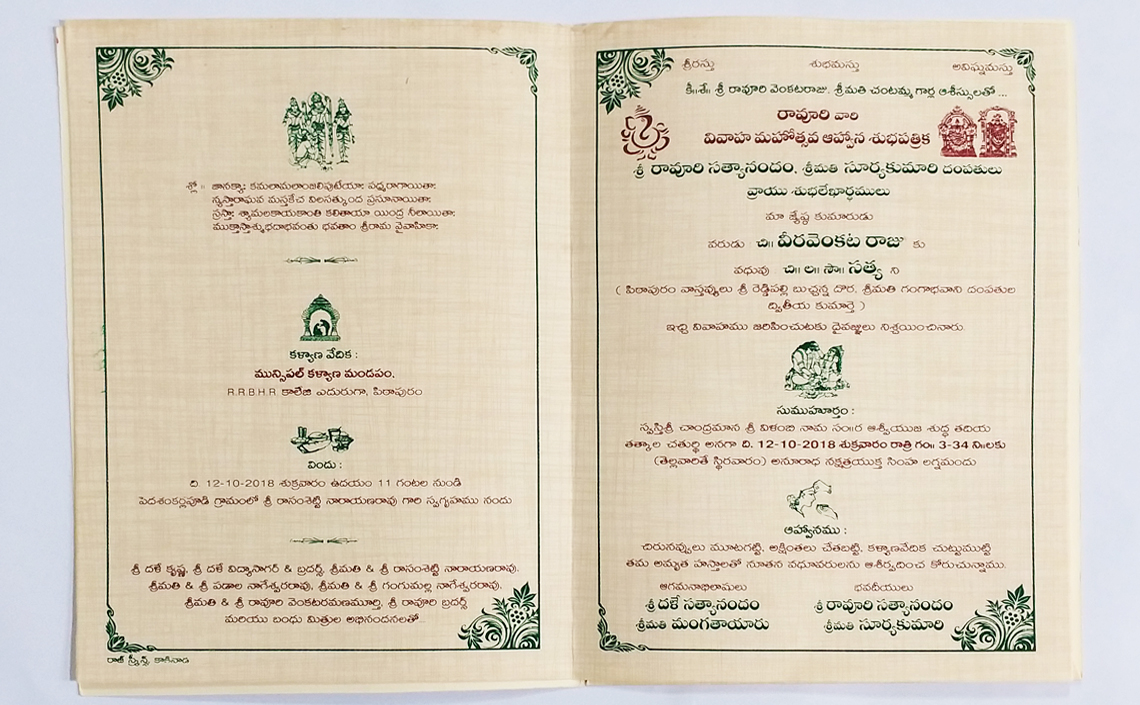 శ్లో ॥ జానక్యాః కమలామలాంజలిపుటేయాః పద్మరాగాయితాః
న్యస్తారాఘవ మస్తకేచ విలసత్కుంద ప్రసూనాయితాః
స్రస్తాః శ్యామలకాయకాంతి కలితాయా యింద్ర నీలాయితాః
ముక్తాస్తాశ్శుభదాభవంతు భవతాం శ్రీరామ వైవాహికాః
కళ్యాణ వేదిక :
మున్సిపల్ కళ్యాణ మండపం,
R.R.B.H.R. కాలేజి ఎదురుగా, పిఠాపురం
విందు :
ది. 12-10-2018 శుక్రవారం ఉదయం 11 గంటల నుండి
పెదశంకర్లపూడి గ్రామంలో శ్రీ రాసంశెట్టి నారాయణరావు గారి స్వగృహము నందు
శ్రీ దళే కృష్ణ, శ్రీ దళే విద్యాసాగర్ & బ్రదర్స్, శ్రీమతి & శ్రీ రాసంశెట్టి నారాయణరావు,
శ్రీమతి & శ్రీ పడాల నాగేశ్వరరావు, శ్రీమతి & శ్రీ గంగుమల్ల నాగేశ్వరరావు,
శ్రీమతి & శ్రీ రావూరి వెంకటరమణమూర్తి, శ్రీ రావూరి బ్రదర్స్
మరియు బంధు మిత్రుల అభినందనలతో...
రాజీ స్క్రీన్స్, కాకినాడ
శ్రీరస్తు శుభమస్తు అవిఘ్నమస్తు
కీ॥శే॥ శ్రీ రావూరి వెంకటరాజు, శ్రీమతి చంటమ్మ గార్ల ఆశీస్సులతో ...
రావూరి వారి
వివాహ మహోత్సవ ఆహ్వాన శుభపత్రిక
శ్రీ రావూరి సత్యానందం, శ్రీమతి సూర్యకుమారి దంపతులు
వ్రాయు శుభలేఖార్థములు
మా జ్యేష్ఠ కుమారుడు
వరుడు చి॥ వీరవెంకట రాజు కు
వధువు చి॥ ల॥ సౌ॥ సత్య ని
( పిఠాపురం వాస్తవ్యులు శ్రీ రెడ్డిపల్లి బుచ్చన్న దొర, శ్రీమతి గంగాభవాని దంపతుల
ద్వితీయ కుమార్తె )
ఇచ్చి వివాహము జరిపించుటకు దైవజ్ఞులు నిశ్చయించినారు.
సుముహూర్తం :
స్వస్తిశ్రీ చాంద్రమాన శ్రీ విళంబి నామ సం॥ర ఆశ్వీయుజ శుద్ధ తదియ
తత్కాల చతుర్థి అనగా ది. 12-10-2018 శుక్రవారం రాత్రి గం॥ 3-34 ని॥లకు
(తెల్లవారితే స్థిరవారం) అనూరాధ నక్షత్రయుక్త సింహ లగ్నమందు
ఆహ్వానము :
చిరునవ్వులు మూటగట్టి, అక్షింతలు చేతబట్టి, కళ్యాణవేదిక చుట్టుముట్టి
తమ అమృత హస్తాలతో నూతన వధూవరులను ఆశీర్వదించ కోరుచున్నాము.
ఆగమనాభిలాషులు భవదీయులు
శ్రీ దళే సత్యానందం శ్రీ రావూరి సత్యానందం
శ్రీమతి మంగతాయారు శ్రీమతి సూర్యకుమారి